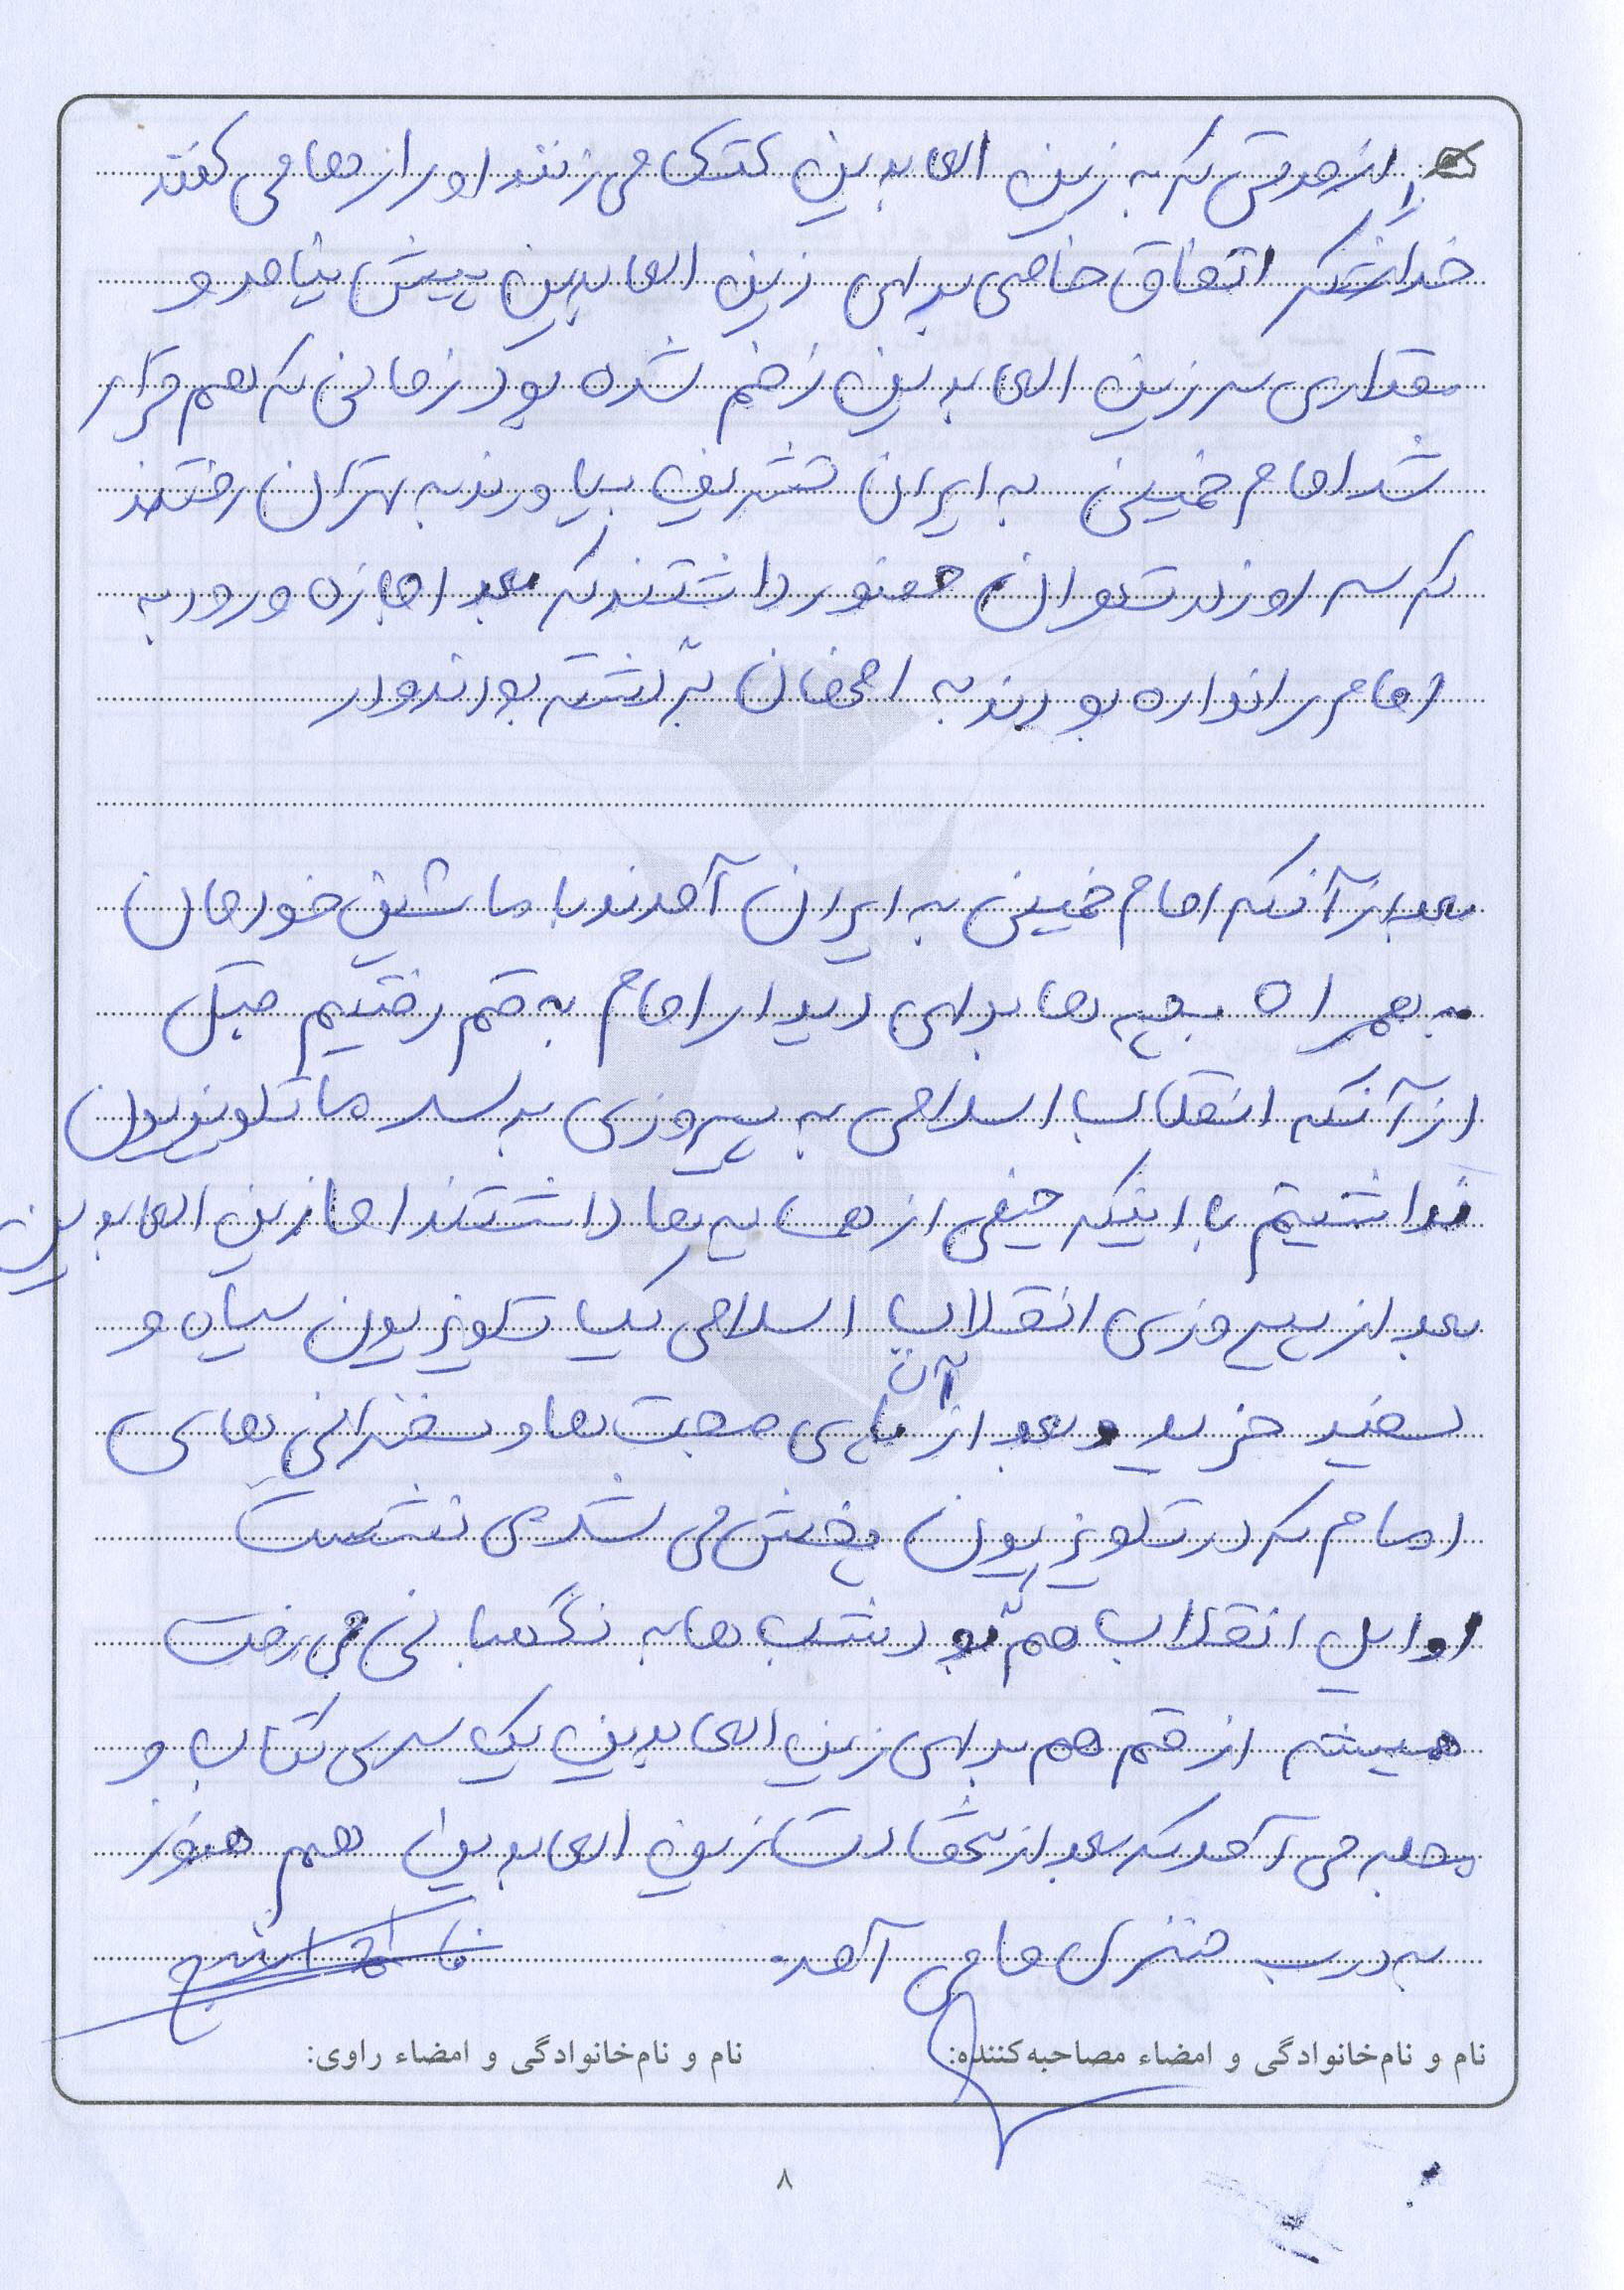 از مدتی که به زین العابدین کتک می زنند او را رها می کنند
خدا را شکر اتفاق خاصی برای زین العابدین پیش نیامد و
مقداری سر زین العابدین زخم شده بود زمانی که هم قرار
شد امام خمینی به ایران تشریف بیاورند به تهران رفتند
که سه روز در تهران حضور داشتند که بعد اجازه ورود به
امام را نداده بودند به اصفهان برگشته بودند
بعد از آنکه امام خمینی به ایران آمدند با ماشین خودمان
به همراه بچه ها برای دیدار امام به قم رفتیم قبل
از آنکه انقلاب اسلامی به پیروزی برسد ما تلویزیون
نداشتیم با اینکه خیلی از همسایه ها داشتند اما زین العابدین
بعد از پیروزی انقلاب اسلامی یک تلویزیون سیاه و
سفید خرید و بعد از آن پای صحبت ها و سخنرانی های
امام که در تلویزیون پخش می شد می نشست
اوایل انقلاب هم بود شب ها به نگهبانی می رفت
همیشه از قم هم برای زین العابدین یک سری کتاب و
مجله می آمد که بعد از شهادت زین العابدین هم هنوز
به درب منزل ما می آمد.
نام و نام‌خانوادگی و امضاء مصاحبه‌کننده:
نام و نام‌خانوادگی و امضاء راوی:
۸